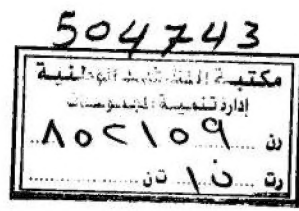 504743
مكتبة الملك فهد الوطنية
إدارة تنمية المجموعات
رن ٨٥٢١٥٩
رت ١ ن تن